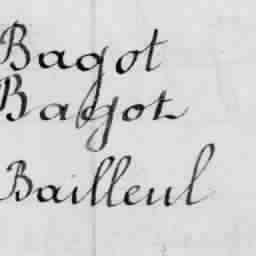 Bagot
Bagot
Bailleul